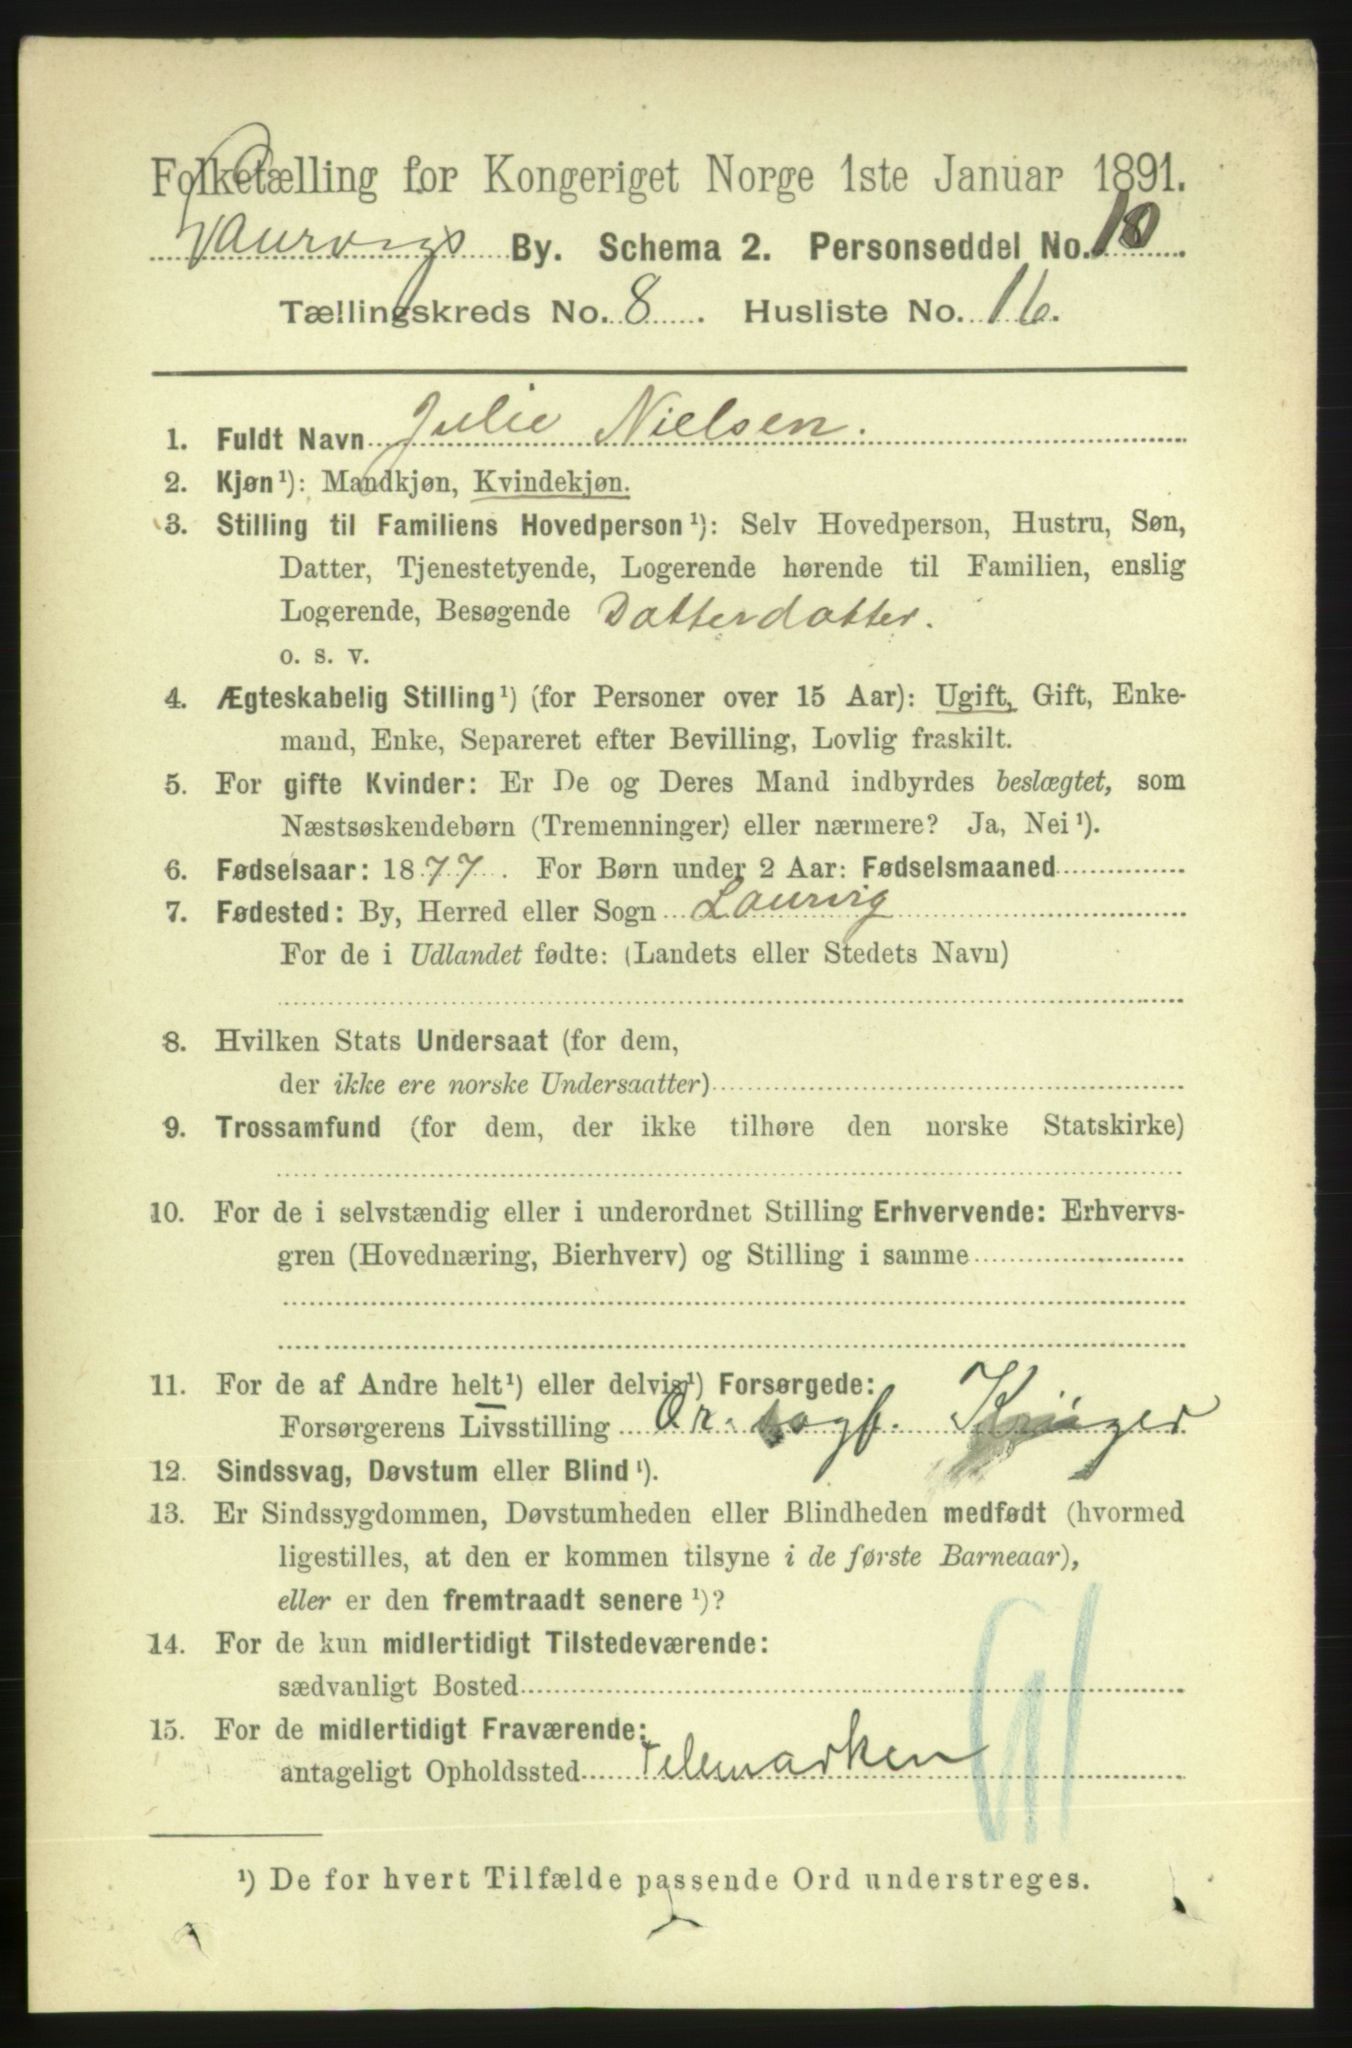 Folketælling for Kongeriget Norge 1ste Januar 1891.
Laurvigs By. Schema 2. Personseddel No. 10
Tællingskreds No. 8. Husliste No. 16.
1. Fuldt Navn Julie Nielsen.
2. Kjøn¹): Mandkjøn, Kvindekjøn.
3. Stilling til Familiens Hovedperson¹): Selv Hovedperson, Hustru, Søn,
Datter, Tjenestetyende, Logerende hørende til Familien, enslig
Logerende, Besøgende Datterdatter.
o. s. v.
4. Ægteskabelig Stilling¹) (for Personer over 15 Aar): Ugift, Gift, Enke-
mand, Enke, Separeret efter Bevilling, Lovlig fraskilt.
5. For gifte Kvinder: Er De og Deres Mand indbyrdes beslægtet, som
Næstsøskendebørn (Tremenninger) eller nærmere? Ja, Nei¹).
6. Fødselsaar: 1877. For Børn under 2 Aar: Fødselsmaaned
7. Fødested: By, Herred eller Sogn Laurvig
For de i Udlandet fødte: (Landets eller Stedets Navn)
8. Hvilken Stats Undersaat (for dem,
der ikke ere norske Undersaatter)
9. Trossamfund (for dem, der ikke tilhøre den norske Statskirke)
10. For de i selvstændig eller i underordnet Stilling Erhvervende: Erhvervs-
gren (Hovednæring, Bierhverv) og Stilling i samme
11. For de af Andre helt¹) eller delvis¹) Forsørgede:
Forsørgerens Livsstilling Krüger
12. Sindssvag, Døvstum eller Blind¹).
13. Er Sindssygdommen, Døvstumheden eller Blindheden medfødt (hvormed
ligestilles, at den er kommen tilsyne i de første Barneaar),
eller er den fremtraadt senere¹)?
14. For de kun midlertidigt Tilstedeværende:
sædvanligt Bosted
15. For de midlertidigt Fraværende:
antageligt Opholdssted Telemarken
¹) De for hvert Tilfælde passende Ord understreges.